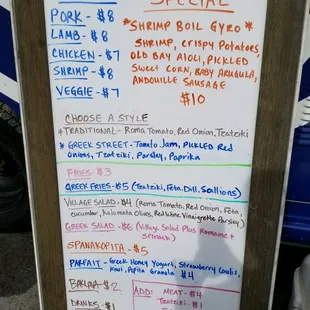 SPECIAL
PORK - $8
LAMB - $8
CHICKEN - $7
SHRIMP - $8
VEGGIE - $7
*SHRIMP BOIL GYRO*
SHRIMP, CRISPY POTATOES,
OLD BAY AIOLI, PICKLED
SWEET CORN, BABY ARUGULA,
ANDOUILLE SAUSAGE
$10
CHOOSE A STYLE
*TRADITIONAL - Roma Tomato, Red Onion, Tzatziki
* GREEK STREET - Tomato Jam, PICKLED Red
Onions, Tzatziki, Parsley, Paprika
FRIES - $3
GREEK FRIES - $5 (Tzatziki, Feta, Dill, Scallions)
VILLAGE SALAD - $4 (Roma Tomato, Red Onion, Feta,
cucumber, Kalamata Olives, Red Wine Vinaigrette Parsley)
GREEK SALAD - $6 (Village Salad Plus Romaine +
Spinach)
SPANAKOPITA - $5
PARFAIT - Greek Honey Yogurt, Strawberry Coulis,
Kiwi, Pepita Granola $4
BAKLAVA - $2
DRINKS - $1
ADD: MEAT - $4
Tzatziki - $1